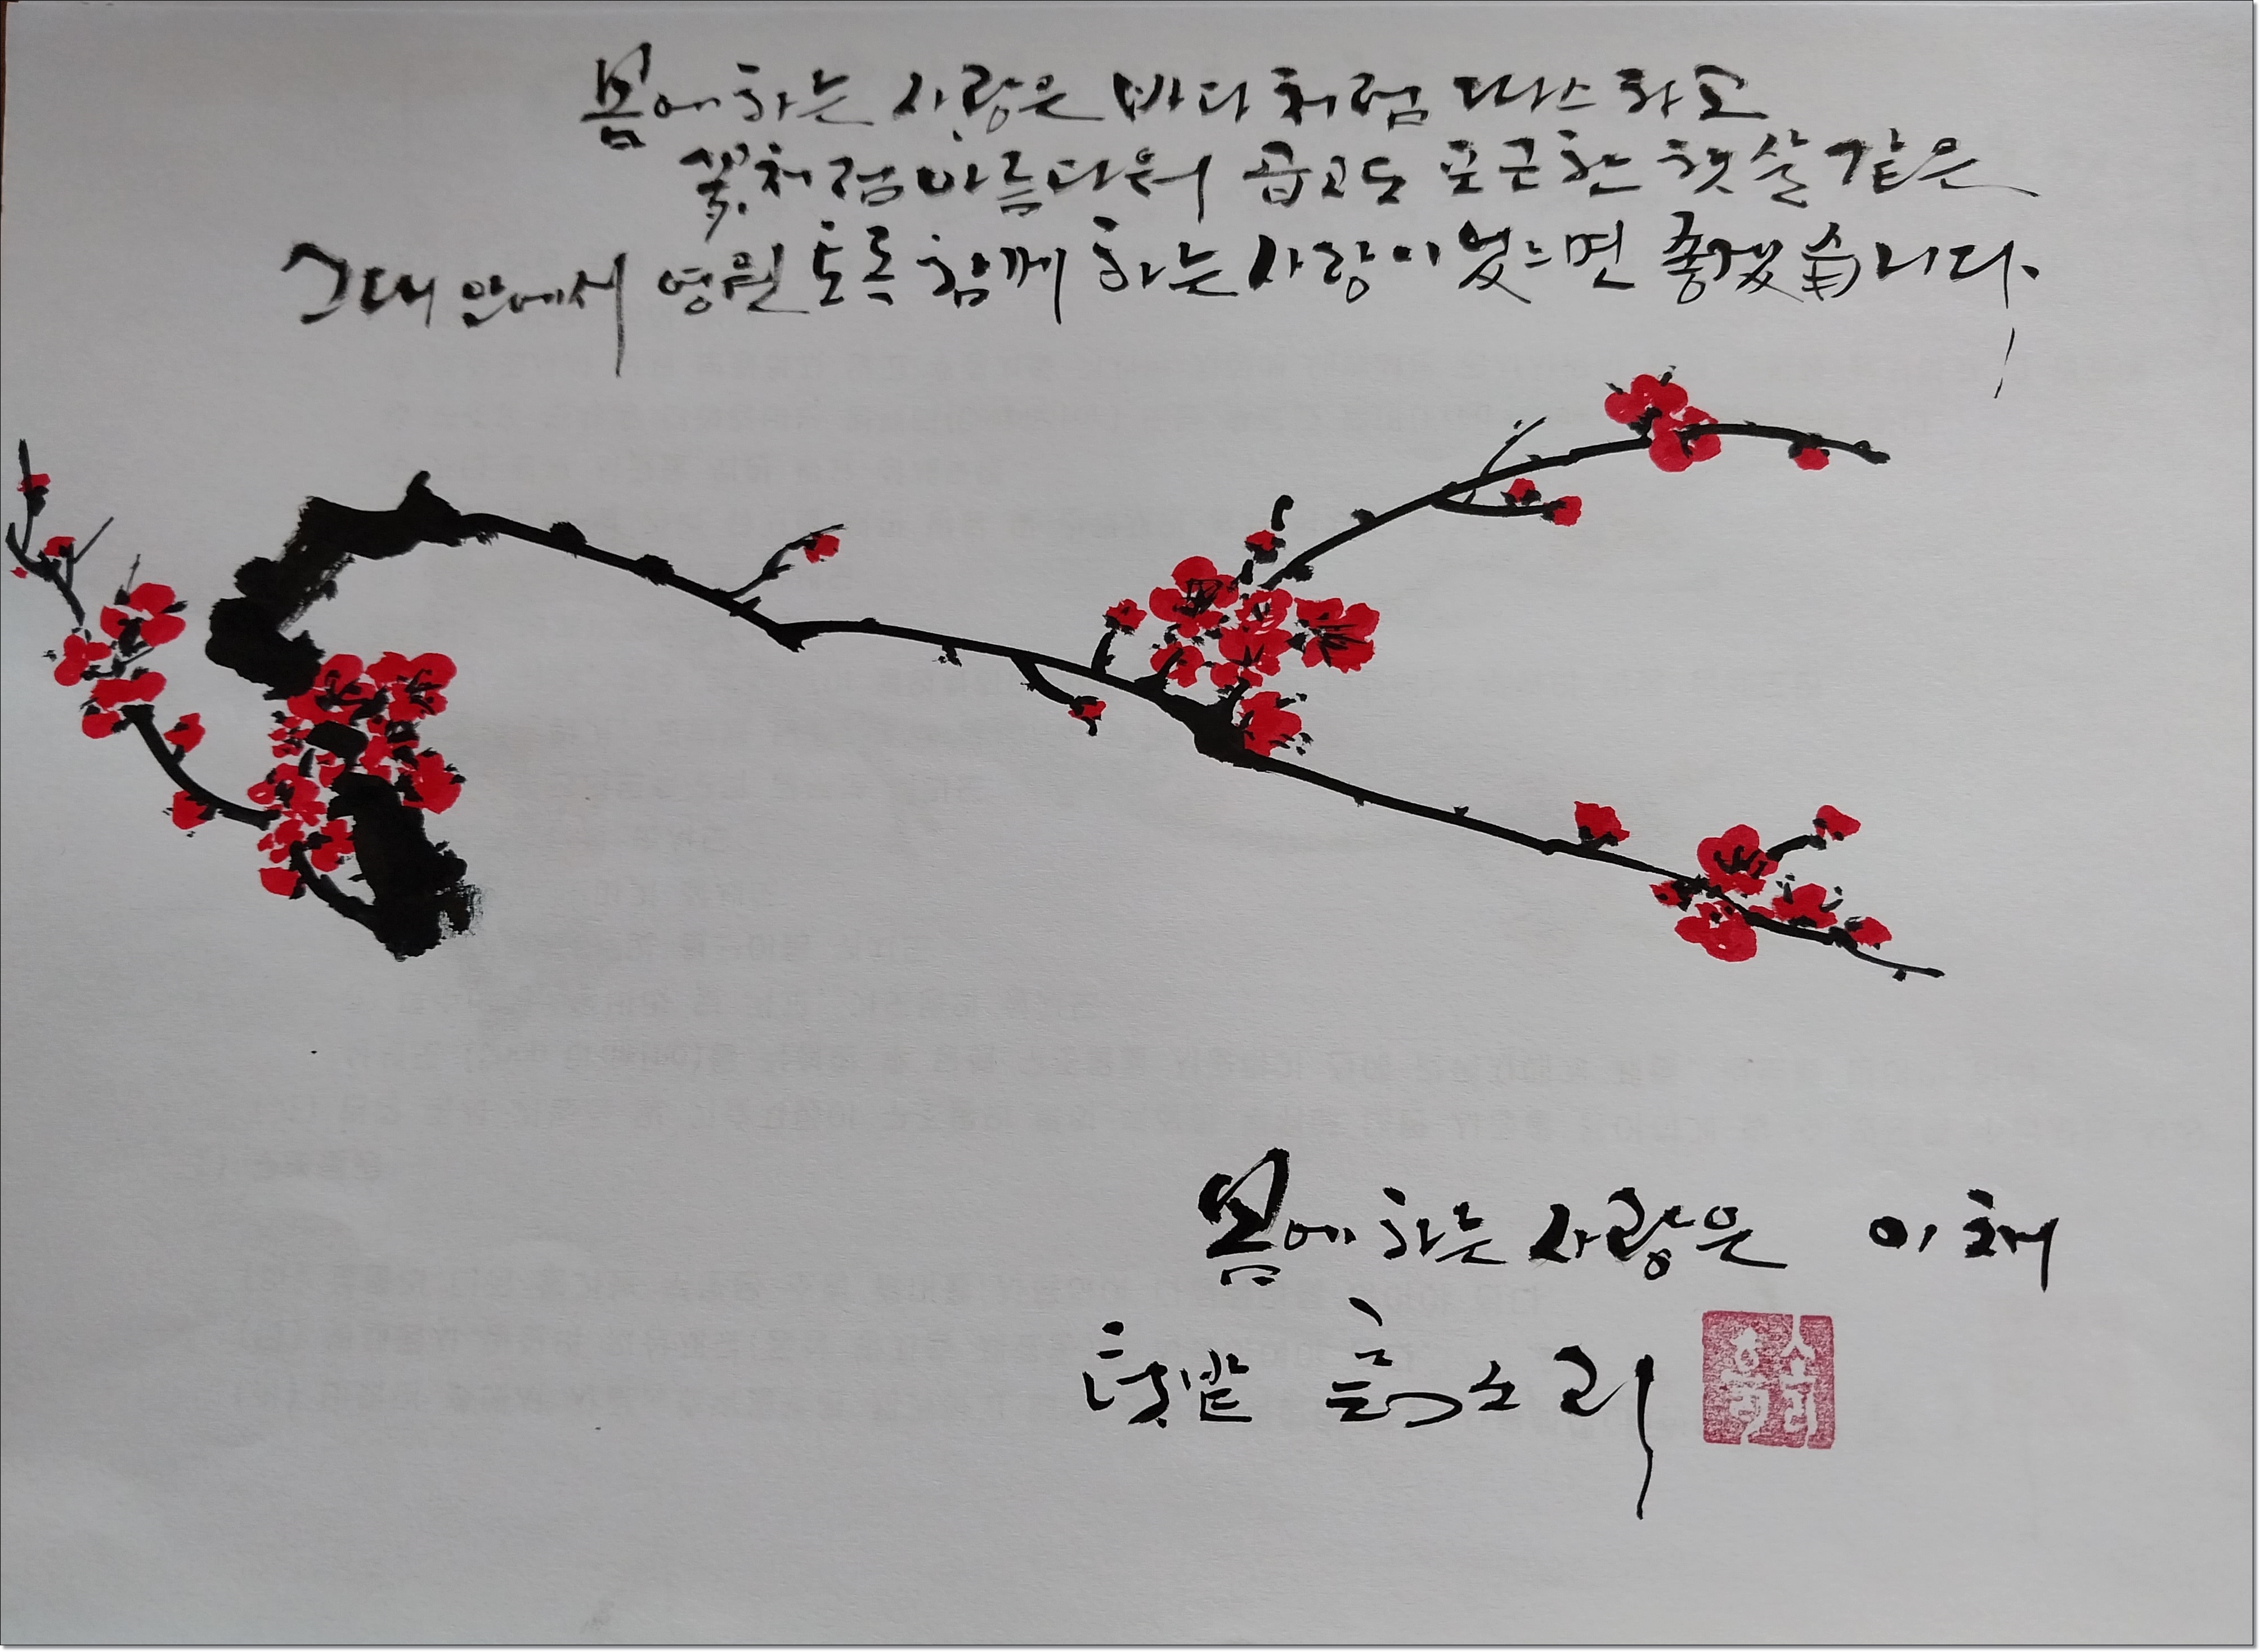 봄에 하는 사랑은 바다처럼 따스하고
꽃처럼 아름다워 곱고도 포근한 햇살 같은
그대 안에서 영원토록 함께 하는 사랑이었으면 좋겠습니다.
봄에 하는 사랑은 이채
소리